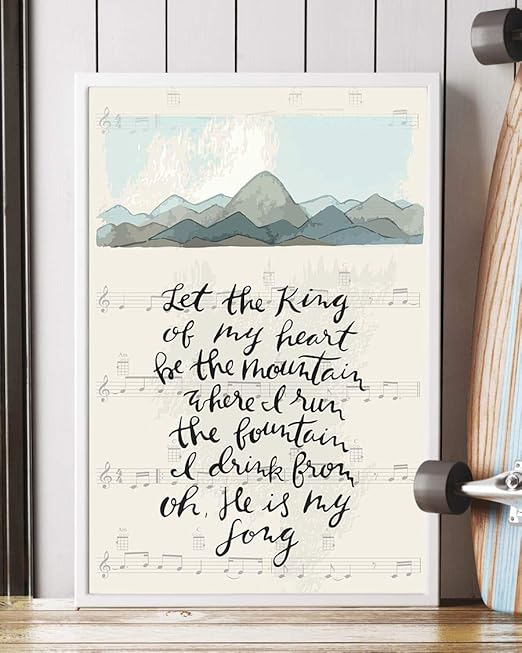 Let the King
of my heart
be the mountain
where I run
the fountain
I drink from
oh, He is my
song